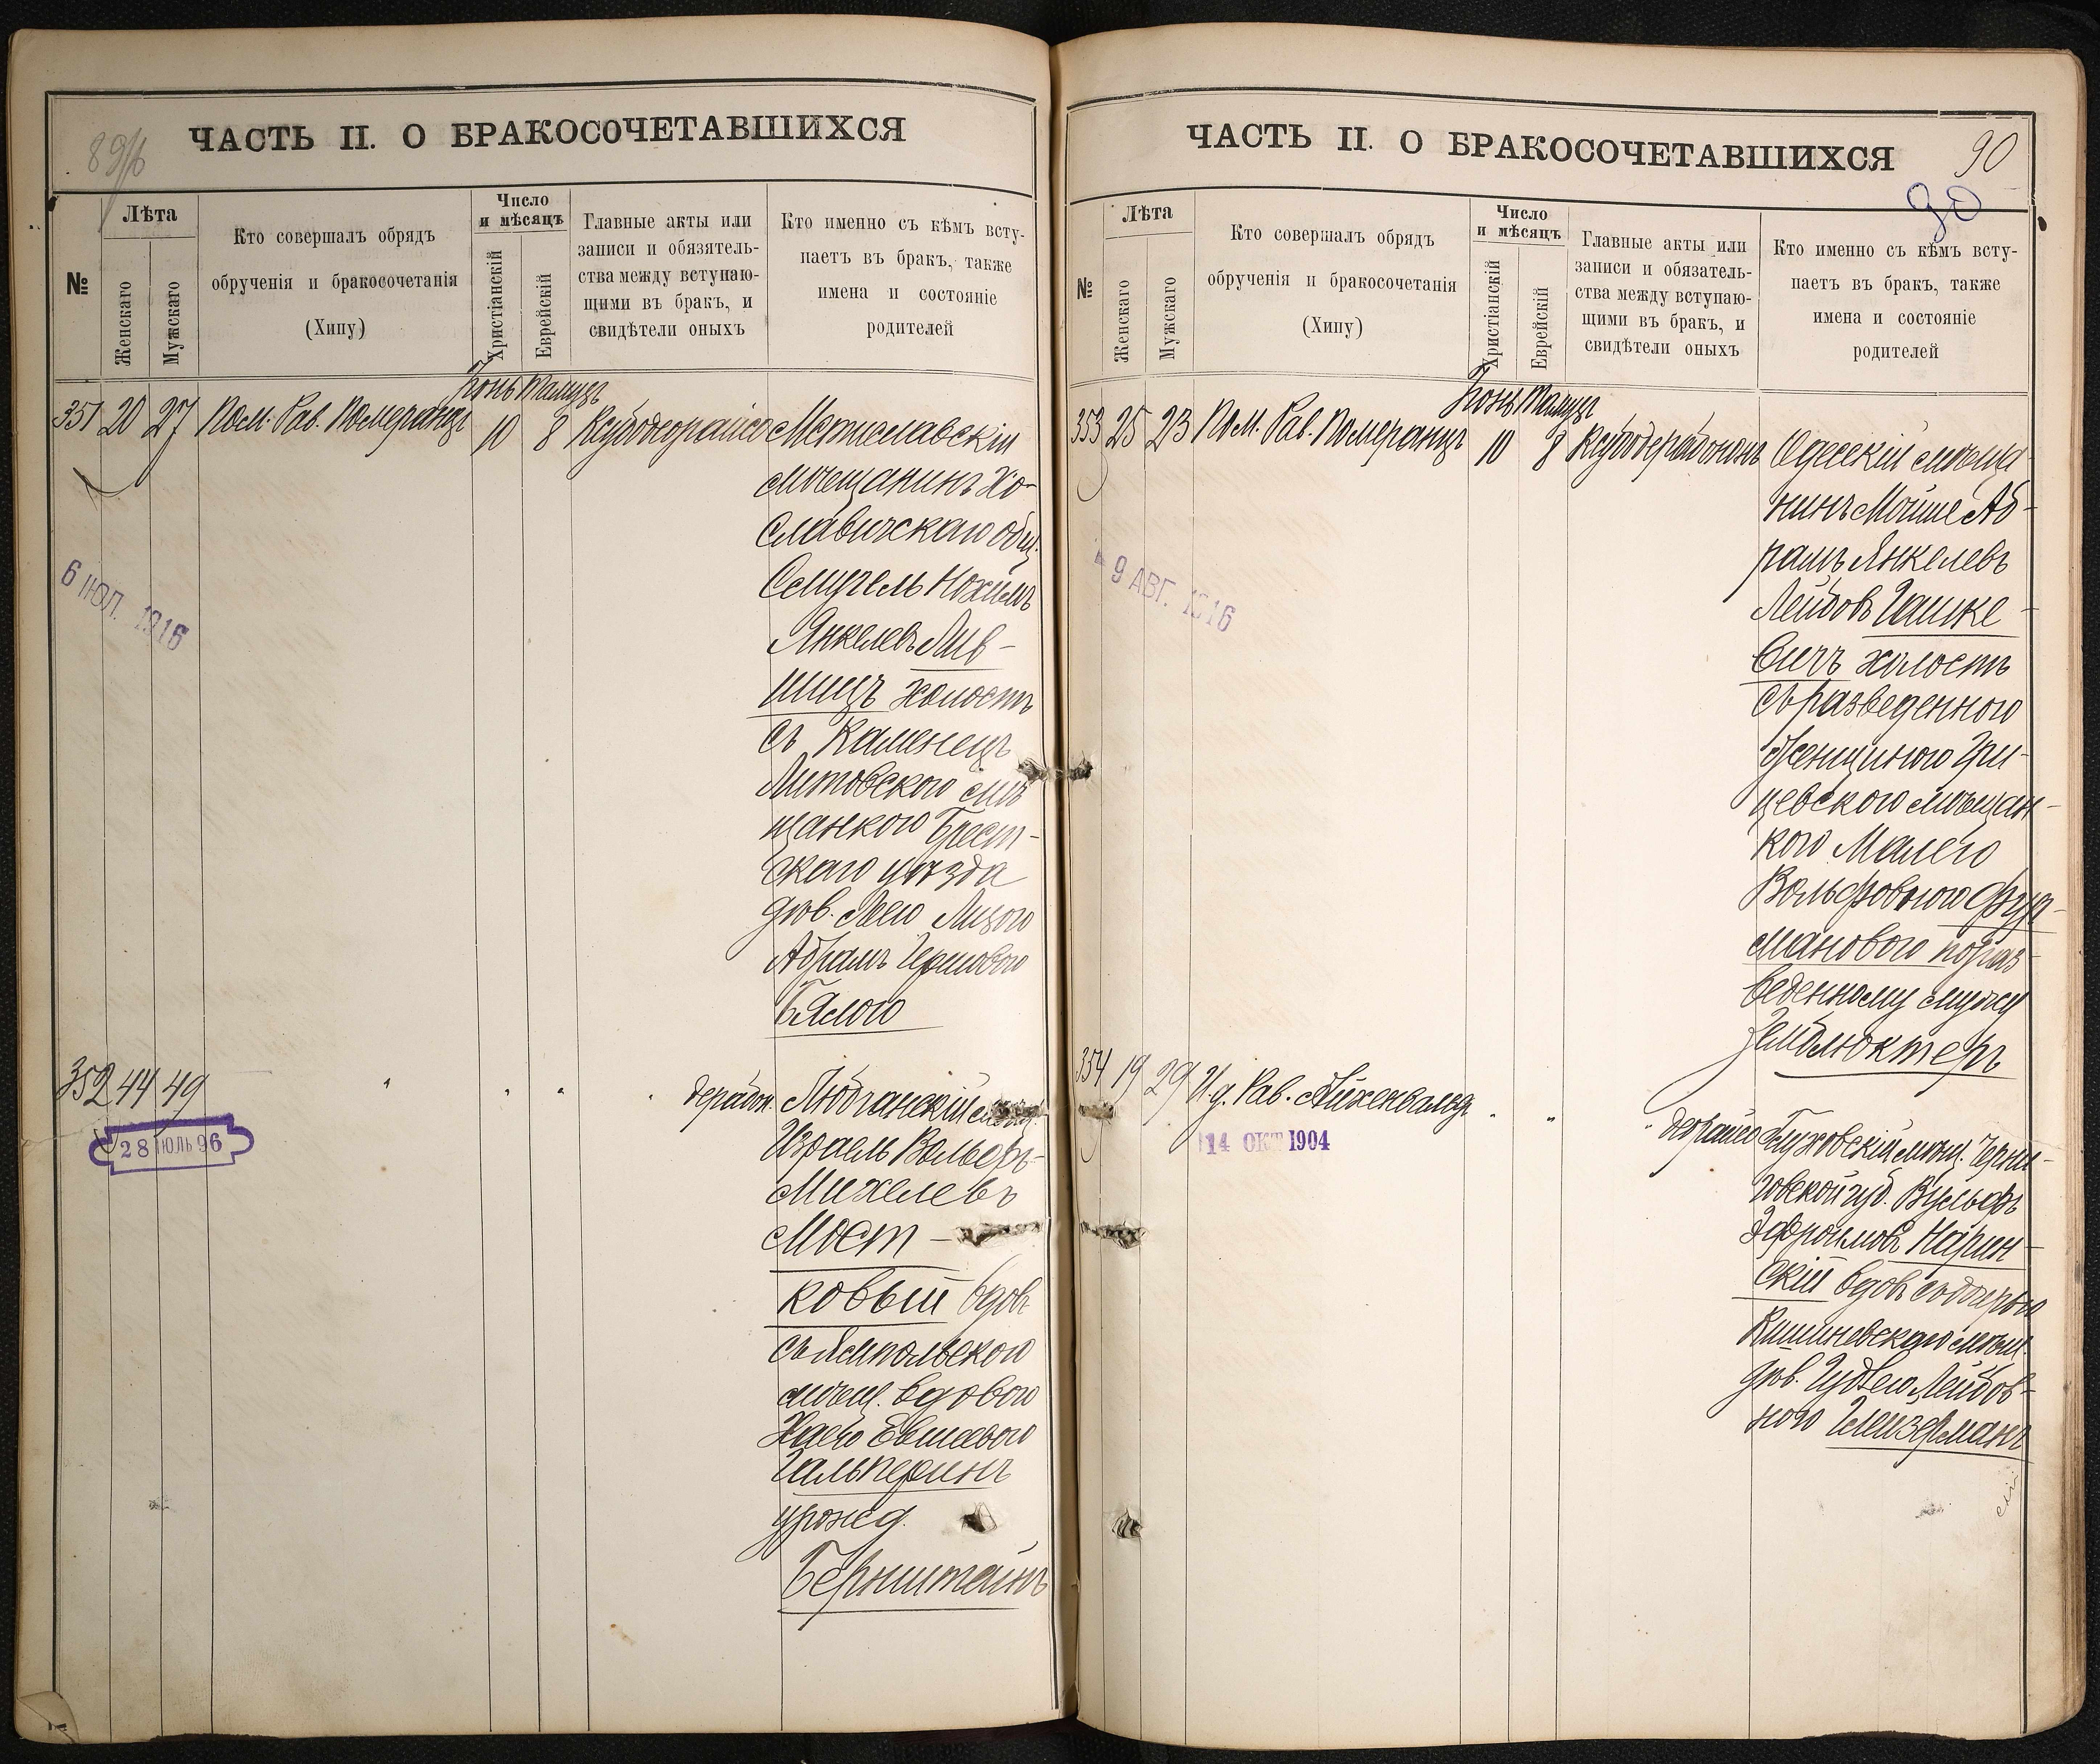 89об
ЧАСТЬ II. О БРАКОСОЧЕТАВШИХСЯ
№
Лѣта
Женскаго
Мужскаго
Кто совершалъ обрядъ
обрученія и бракосочетанія
(Хипу)
Число
и мѣсяцъ
Христіанскій
Еврейскій
Главные акты или
записи и обязятель-
ства между вступаю-
щими въ бракъ, и
свидѣтели оныхъ
Кто именно съ кѣмъ всту-
паетъ въ бракъ, также
имена и состояніе
родителей
Іюнь Тамузъ
351 20 27 Пом. Рав. Померанцъ 10 8 Ксубодеорайсо Мстиславскій
мѣщанинъ Хо-
славичскаго общ.
Самуель Нохимъ
Янкелевъ Лив-
шицъ холостъ
съ Каменецъ
Литовскою мѣ
щанкою Брест-
скаго уѣзда
дѣв. Лею Лизою
Абрамъ Гершовою
Бялою
6 ІЮЛ. 1916
352 44 49 " " " " дерабон. Любчанскій мѣщ.
Израель Вольфъ-
Михелевъ
Мост-
ковый вдов.
съ Ямпольскою
мѣщ. вдовою
Хаею Евшеевою
Гальперинъ
урожд.
Бернштейнъ
28 ІЮЛЬ 96
90
90
ЧАСТЬ II. О БРАКОСОЧЕТАВШИХСЯ
№
Лѣта
Женскаго
Мужскаго
Кто совершалъ обрядъ
обрученія и бракосочетанія
(Хипу)
Число
и мѣсяцъ
Христіанскій
Еврейскій
Главные акты или
записи и обязатель-
ства между вступаю-
щими въ бракъ, и
свидѣтели оныхъ
Кто именно съ кѣмъ всту-
паетъ въ бракъ, также
имена и состояніе
родителей
Іюнь Тамузъ
353 25 23 Пом. Рав. Померанцъ 10 8 Ксубодерабононъ Одесскій мѣща-
нинъ Мойше Аб-
рамъ Янкелевъ
Лейбовъ Гашке-
вичъ холостъ
съ разведенною
женщиною Гри-
цевскою мѣщан-
кою Малею
Вольфовною Фур-
мановою по раз-
веденному мужу
Земблюктеръ
9 АВГ. 1916
354 19 29 И.д. Рав. Айхенвальдъ " " " деорайсо Глуховскій мѣщ. Черни-
говской губ. Вульфъ
Эфроимовъ Нарин-
скій вдов. съ дочерью
Кишиневскаго мѣщ.
дѣв. Гудлею Лейбов-
ною Глейзерманъ
14 ОКТ 1904